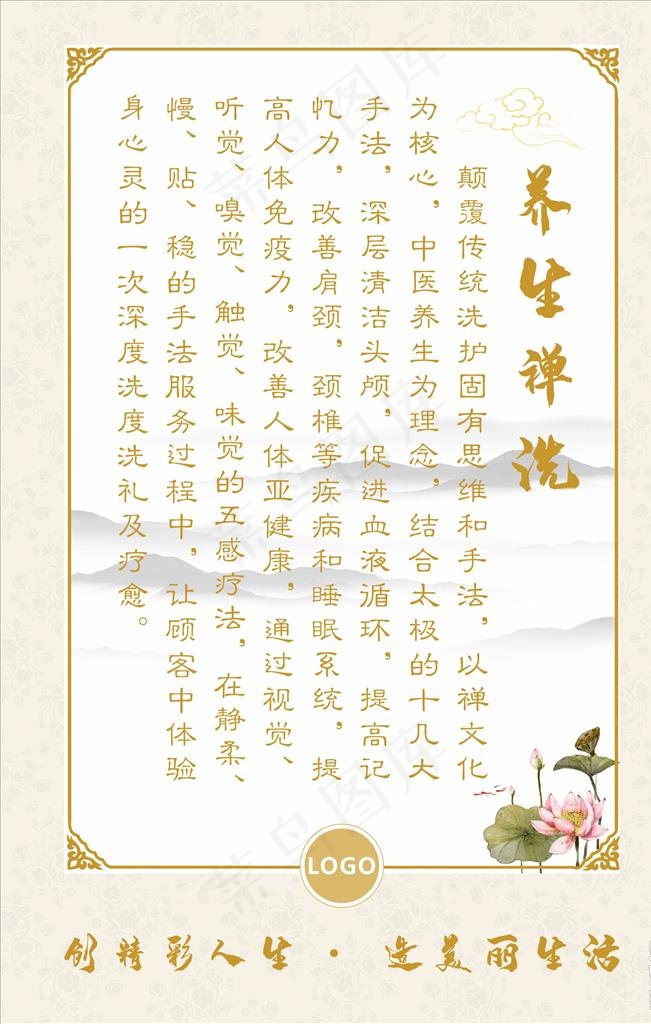 养生禅洗
颠覆传统洗护固有思维和手法，以禅文化
为核心，中医养生为理念，结合太极的十几大
手法，深层清洁头颅，促进血液循环，提高记
忆力，改善肩颈，颈椎等疾病和睡眠系统，提
高人体免疫力，改善人体亚健康，通过视觉、
听觉、嗅觉、触觉、味觉的五感疗法，在静柔、
慢、贴、稳的手法服务过程中，让顾客中体验
身心灵的一次深度洗度洗礼及疗愈。
LOGO
创精彩人生·造美丽生活
菜鸟图库
菜鸟图库
菜鸟图库
菜鸟图库